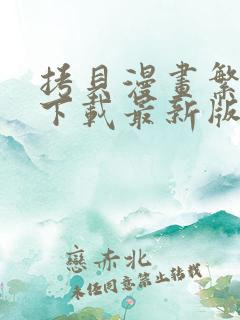 拷貝漫畫繁
下載最新版
戀赤北
未经同意禁止转载